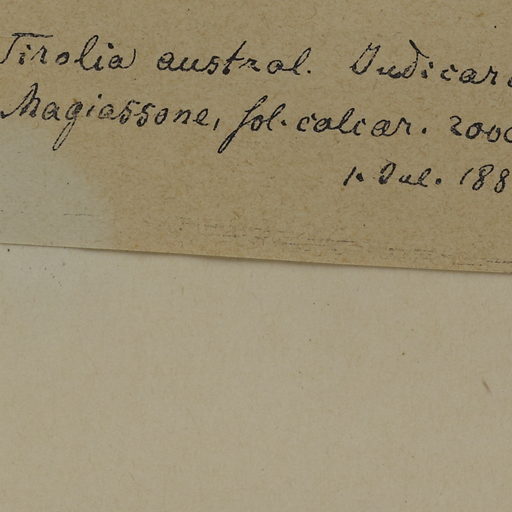 Tirolia austral. Judicar
Magiassone, sol. calcar. 2000
1. Jul. 188